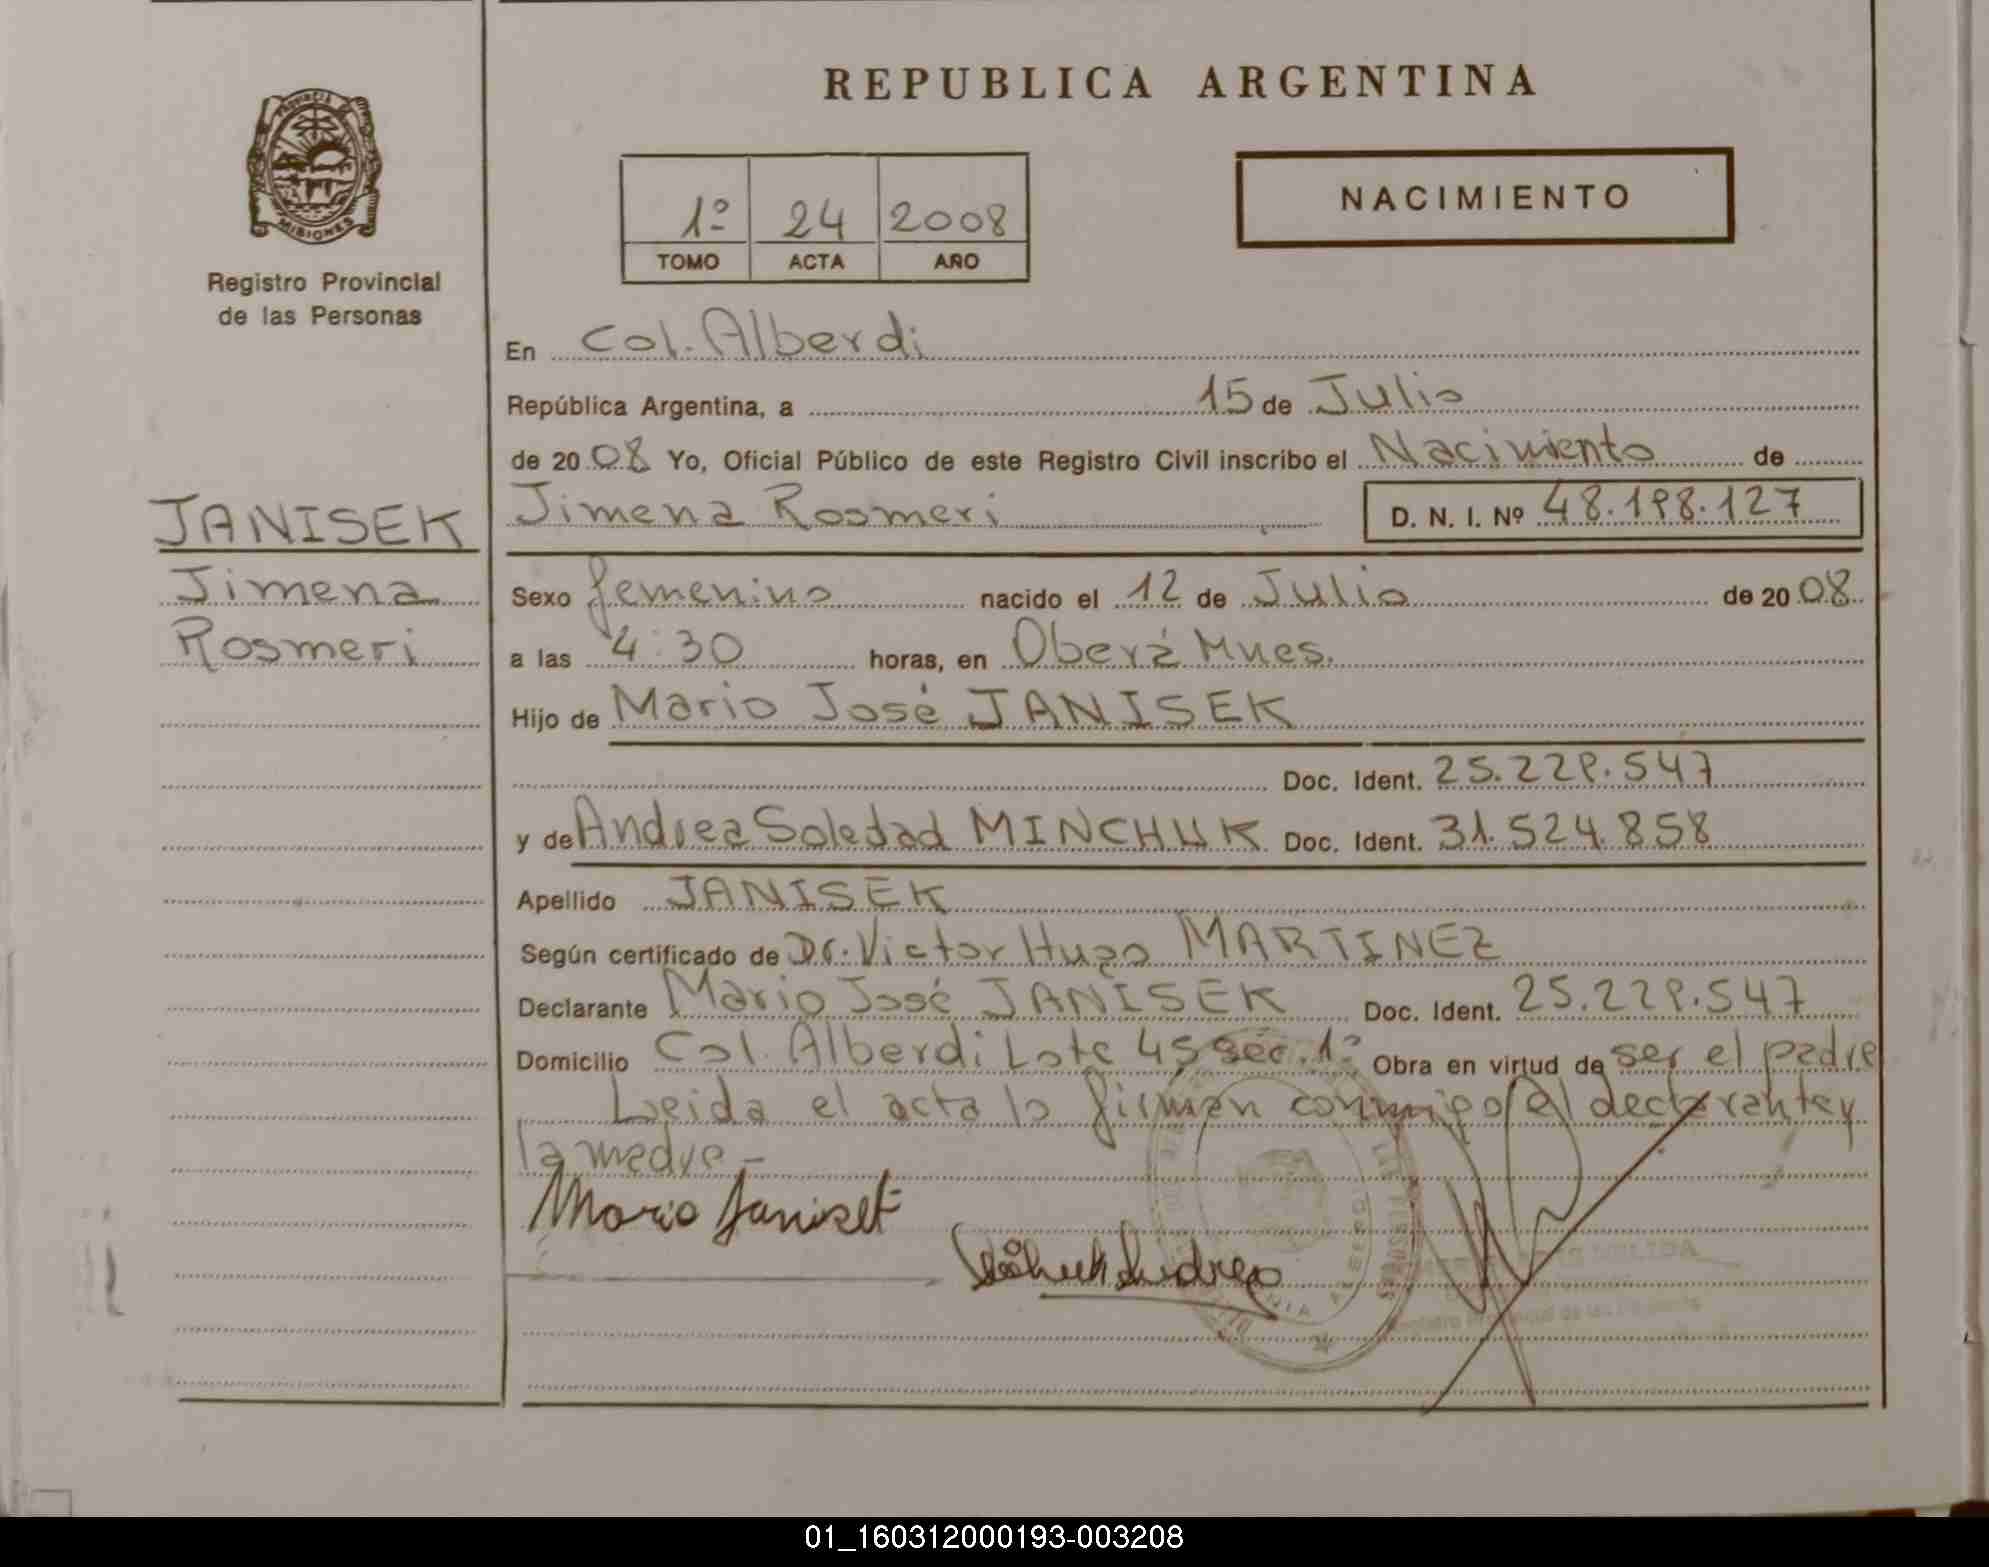 REPUBLICA ARGENTINA
PROVINCIA
MISIONES
Registro Provincial
de las Personas
1º 24 2008
TOMO ACTA AÑO
NACIMIENTO
En Col. Alberdi
República Argentina, a 15 de Julio
de 2008 Yo, Oficial Público de este Registro Civil inscribo el Nacimiento de
JANISEK
Jimena
Rosmeri
Jimena Rosmeri D. N. I. Nº 48.198.127
Sexo femenino nacido el 12 de Julio de 2008
a las 4:30 horas, en Oberá Mnes.
Hijo de Mario José JANISEK
Doc. Ident. 25.229.547
y de Andrea Soledad MINCHUK Doc. Ident. 31.524.858
Apellido JANISEK
Según certificado de Dr. Victor Hugo MARTINEZ
Declarante Mario José JANISEK Doc. Ident. 25.229.547
Domicilio Col. Alberdi Lote 45 sec. 1º Obra en virtud de ser el padre
Leida el acta lo firman conmigo el declarante y
la madre -
Mario Janisek
01_160312000193-003208